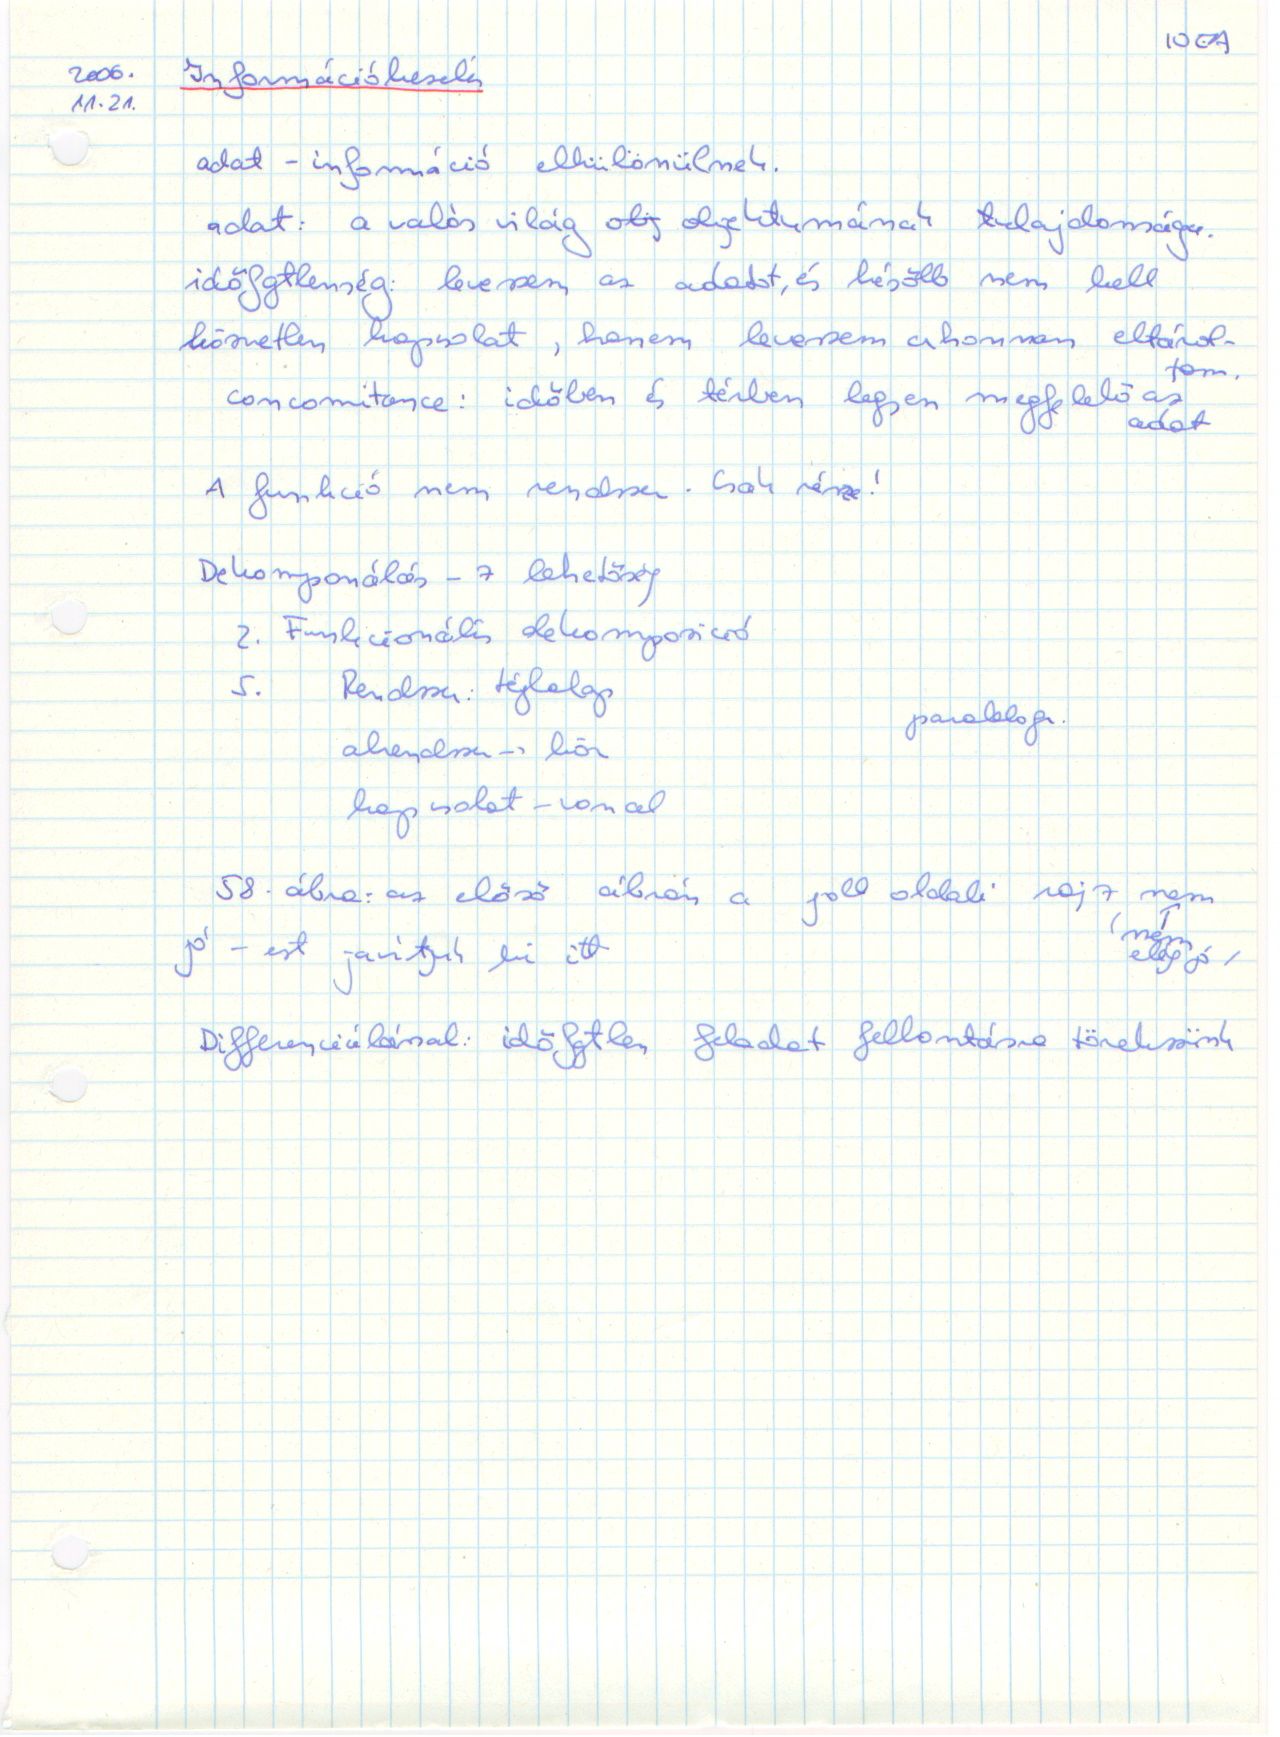 10 EA
2006.
11.21.
Információkezelés
adat - információ elkülönülnek.
adat: a valós világ obj objektumának tulajdonsága.
időfgtlenség: leveszem az adatot, és később nem kell
közvetlen kapcsolat, hanem leveszem ahonnan eltárol-
tam.
concomitance: időben és térben legyen megfelelő az
adat
A funkció nem rendszer. Csak része!
Dekomponálás - 7 lehetőség
2. Funkcionális dekompozició
5. Rendszer: téglalap
parallelogr.
alrendszer → kör
kapcsolat - vonal
58. ábra: az előző ábrán a joll oldali rajz nem
jó - ezt javítjuk ki itt
(nem
elég jó)
Differenciálással: időfgtlen feladat fellontásra törekszünk